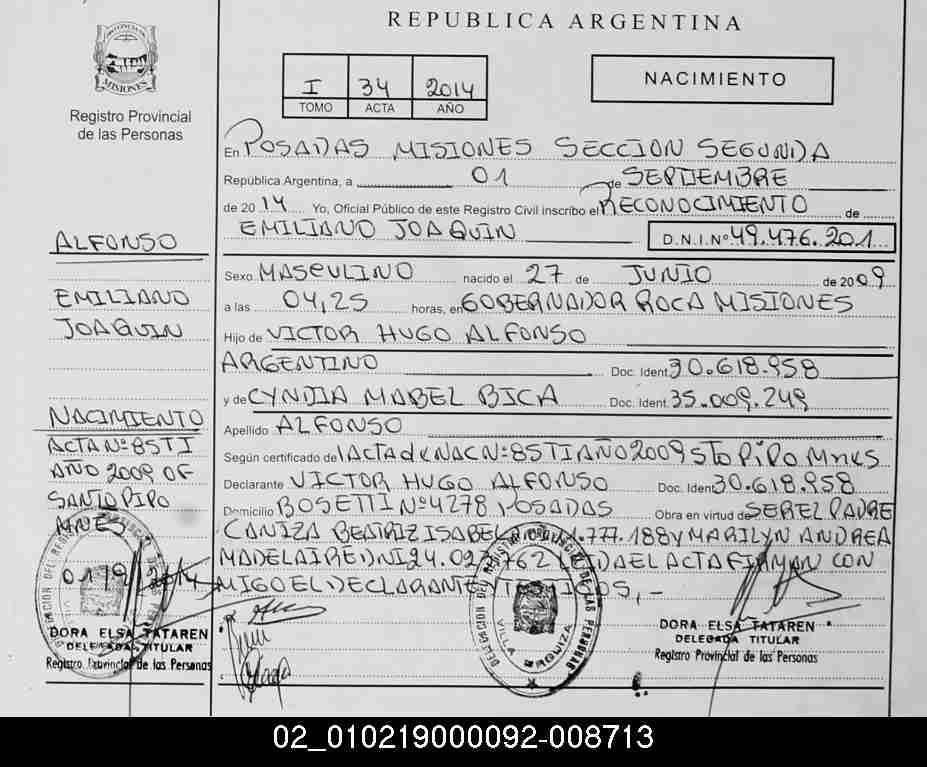 REPUBLICA ARGENTINA
PROVINCIA DE
MISIONES
Registro Provincial
de las Personas
I 34 2014
TOMO ACTA AÑO
NACIMIENTO
En POSADAS MISIONES SECCION SEGUNDA
República Argentina, a 01 de SEPTIEMBRE
de 2014 Yo, Oficial Público de este Registro Civil inscribo el RECONOCIMIENTO de
EMILIANO JOAQUIN D.N.I.Nº 49.476.201
Sexo MASCULINO nacido el 27 de JUNIO de 2009
a las 04,25 horas, en GOBERNADOR ROCA MISIONES
Hijo de VICTOR HUGO ALFONSO
ARGENTINO Doc. Ident. 30.618.958
y de CYNDIA MABEL BICA Doc. Ident. 35.009.249
Apellido ALFONSO
Según certificado de ACTA de NAC Nº 85TI AÑO 2009 STO PIPO MNES
Declarante VICTOR HUGO ALFONSO Doc. Ident. 30.618.958
Domicilio BOSETTI Nº 4278 POSADAS Obra en virtud de SER EL PADRE
CANIZA BEATRIZ ISABEL .777.188 Y MARILYN ANDREA
MADELAIRE DNI 24.027.762 LEIDA EL ACTA FIRMAN CON
MIGO EL DECLARANTE Y TESTIGOS,-
ALFONSO
EMILIANO
JOAQUIN
NACIMIENTO
ACTA Nº 85TI
AÑO 2009 OF
SANTO PIPO
MNES
DORA ELSA TATAREN
DELEGADA TITULAR
Registro Provincial de las Personas
DELEGACION DEL REGISTRO PROVINCIAL DE LAS PERSONAS
VILLA URQUIZA
DORA ELSA TATAREN
DELEGADA TITULAR
Registro Provincial de las Personas
02_010219000092-008713